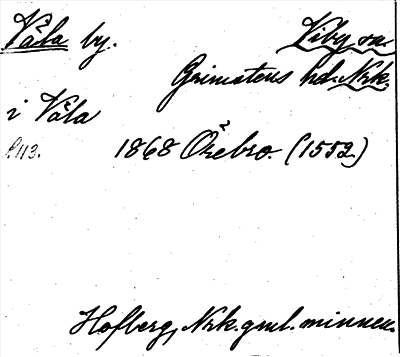 Våla by. Viby sn.
Grimstens hd. Nrk.
i Våla
s. 113. 1868 Örebro. (1552)
Hofberg, Nrk. gml. minnen.